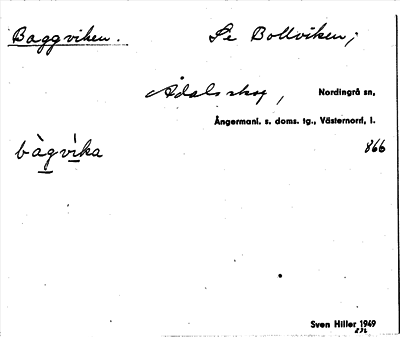 Baggviken. Se Bollviken;
Ådalskog, Nordingrå sn,
Ångermanl. s. doms. tg., Västernorrl. l.
bàgvìka 866
Sven Hiller 1949